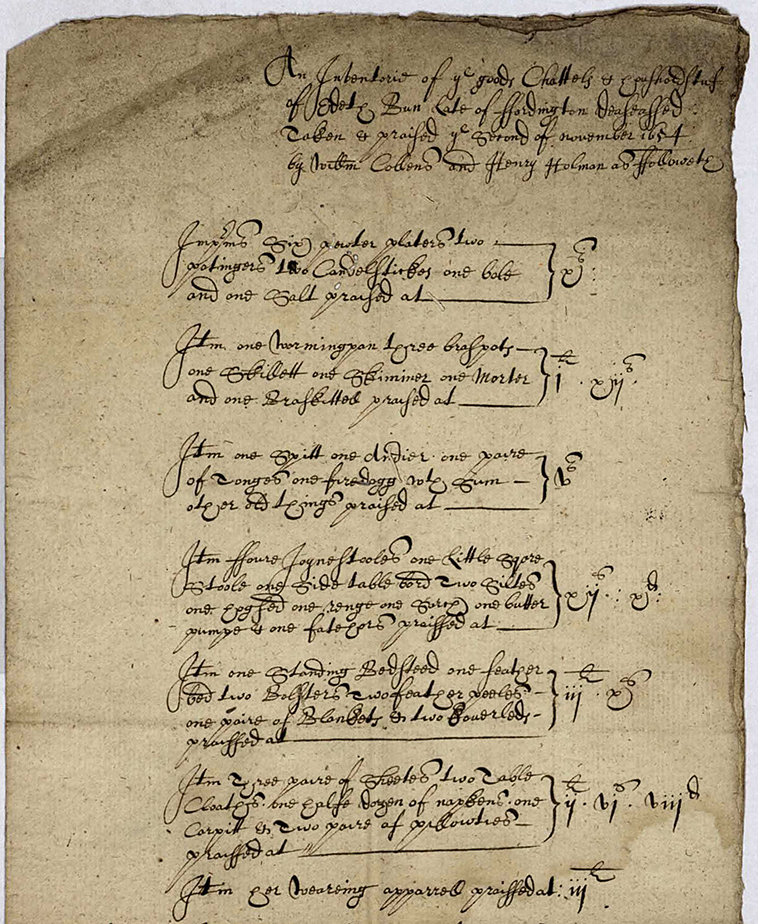 An Inventorie of ye goods Chattels & houshordstuf
of Edeth Bun Late of ffordington deaseassed
Taken & praised ye Second of november 1654
by Willm Collens and Henry Holman as ffolloweth
Imprms Six pewter platers two
potingers two Candelstickes one bole
and one Salt praised at xs
Itm one Warmingpan three braspots
one Skillett one Skimmer one Morter
and one Braskittell praised at li i xiis
Itm one Spitt one Andier one paire
of Tonges one firedogg wth Sum
other old things praised at vs
Itm ffoure Joynestooles one Little
Stoole one Side table bord Two
one hoghed one renge one one butter
pumpe & one praissed at xiis xd
Itm one Standing Bedsteed one feather
bed two Bolsters Two feather peeles
one paire of Blankets & two Coverleds
praissed at iii li xs
Itm Three paire of Sheetes two Table
Cloaths one halfe dozen of napkens one
Carpitt & Two paire of pillowties
praissed at ii li vis viiid
Itm her Weareing apparrell praissed at iii li